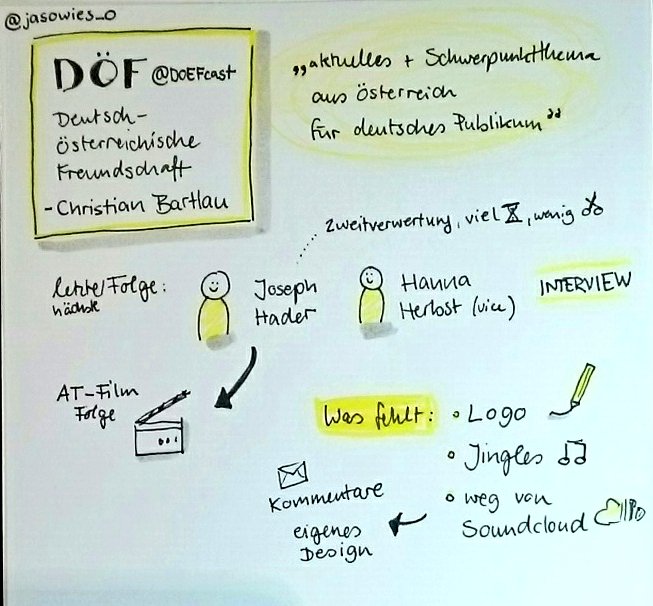 @jasowies_o
DÖF @DOEFcast
Deutsch-
österreichische
Freundschaft
- Christian Bartlau
„aktuelles + Schwerpunktthema
aus Österreich
für deutsches Publikum“
Zweitverwertung, viel, wenig
letzte/Folge:
nächste
Joseph
Hader
Hanna
Herbst (vice)
INTERVIEW
AT-Film
Folge
Was fehlt:
• Logo
• Jingles
• weg von
Soundcloud
Kommentare
eigenes
Design